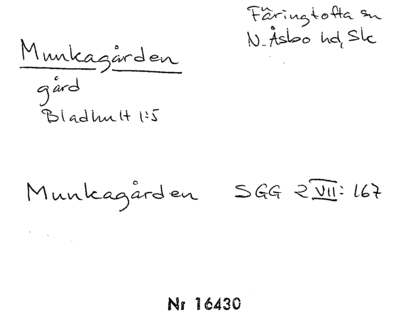 Färingtofta sn
N. Åsbo hd, Sk
Munkagården
gård
Bladhult 1:5
Munkagården SGG 2 VII: 167
Nr 16430